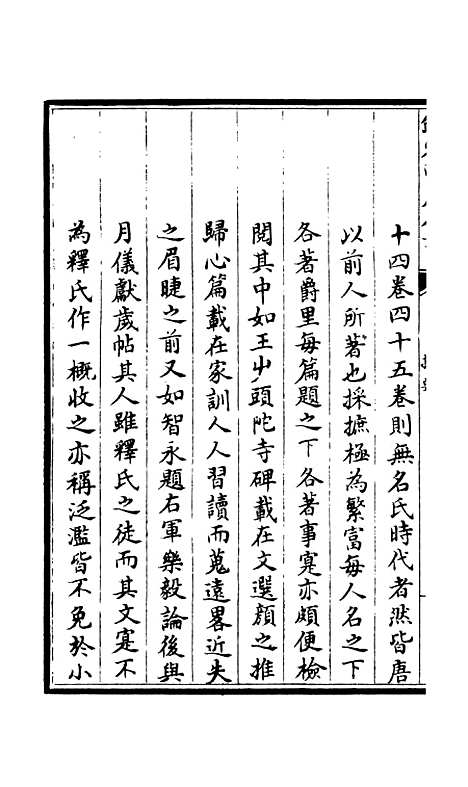 十四卷四十五卷則無名氏時代者然皆唐
以前人所著也採摭極為繁富每人名之下
各著爵里每篇題之下各著事寔亦頗便檢
閱其中如王屮頭陀寺碑載在文選顏之推
歸心篇載在家訓人人習讀而蒐遠畧近失
之眉睫之前又如智永題右軍樂毅論後與
月儀獻歲帖其人雖釋氏之徒而其文寔不
為釋氏作一概收之亦稱泛濫皆不免於小